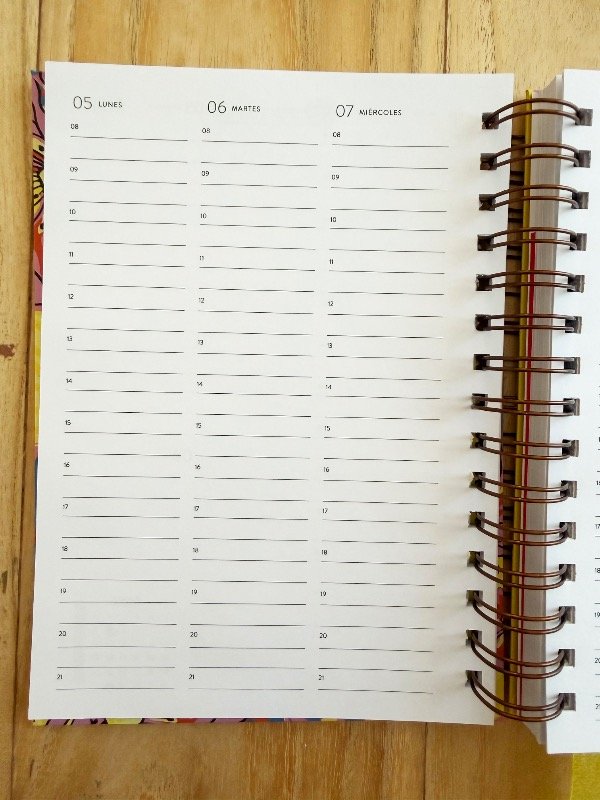 05 LUNES
08
09
10
11
12
13
14
15
16
17
18
19
20
21
06 MARTES
08
09
10
11
12
13
14
15
16
17
18
19
20
21
07 MIÉRCOLES
08
09
10
11
12
13
14
15
16
17
18
19
20
21
17
18
19
20